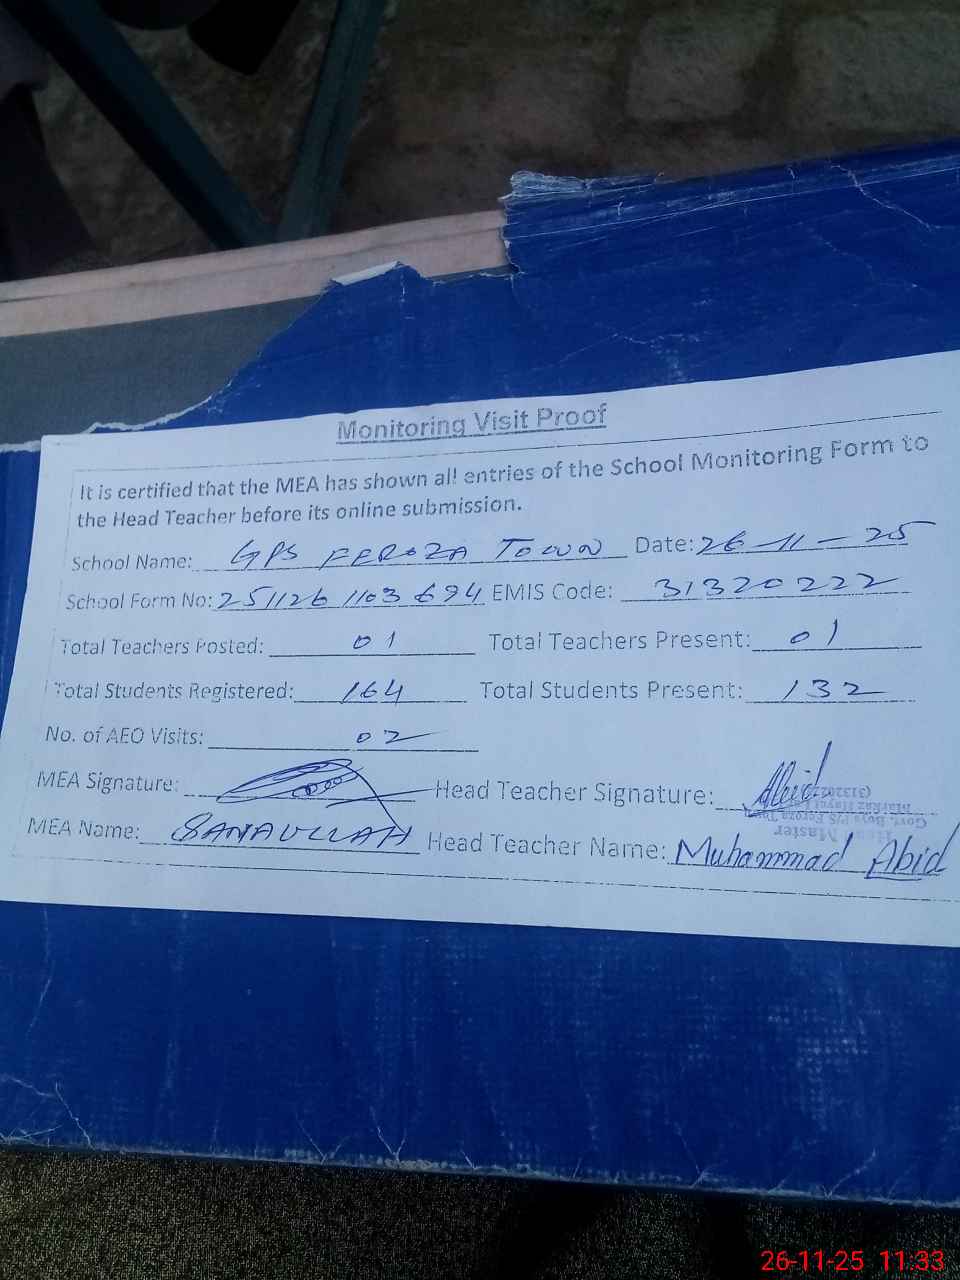 Monitoring Visit Proof
It is certified that the MEA has shown all entries of the School Monitoring Form to
the Head Teacher before its online submission.
School Name: GPS FEROZA TOWN Date: 26-11-25
School Form No: 251126 1103 694 EMIS Code: 31320222
Total Teachers Posted: 01 Total Teachers Present: 01
Total Students Registered: 164 Total Students Present: 132
No. of AEO Visits: 02
MEA Signature: Head Teacher Signature: Abid
MEA Name: SANAULLAH Head Teacher Name: Muhammad Abid
Master
Govt. Boys P/S Feroza Town
Markaz Hayat
26-11-25 11:33